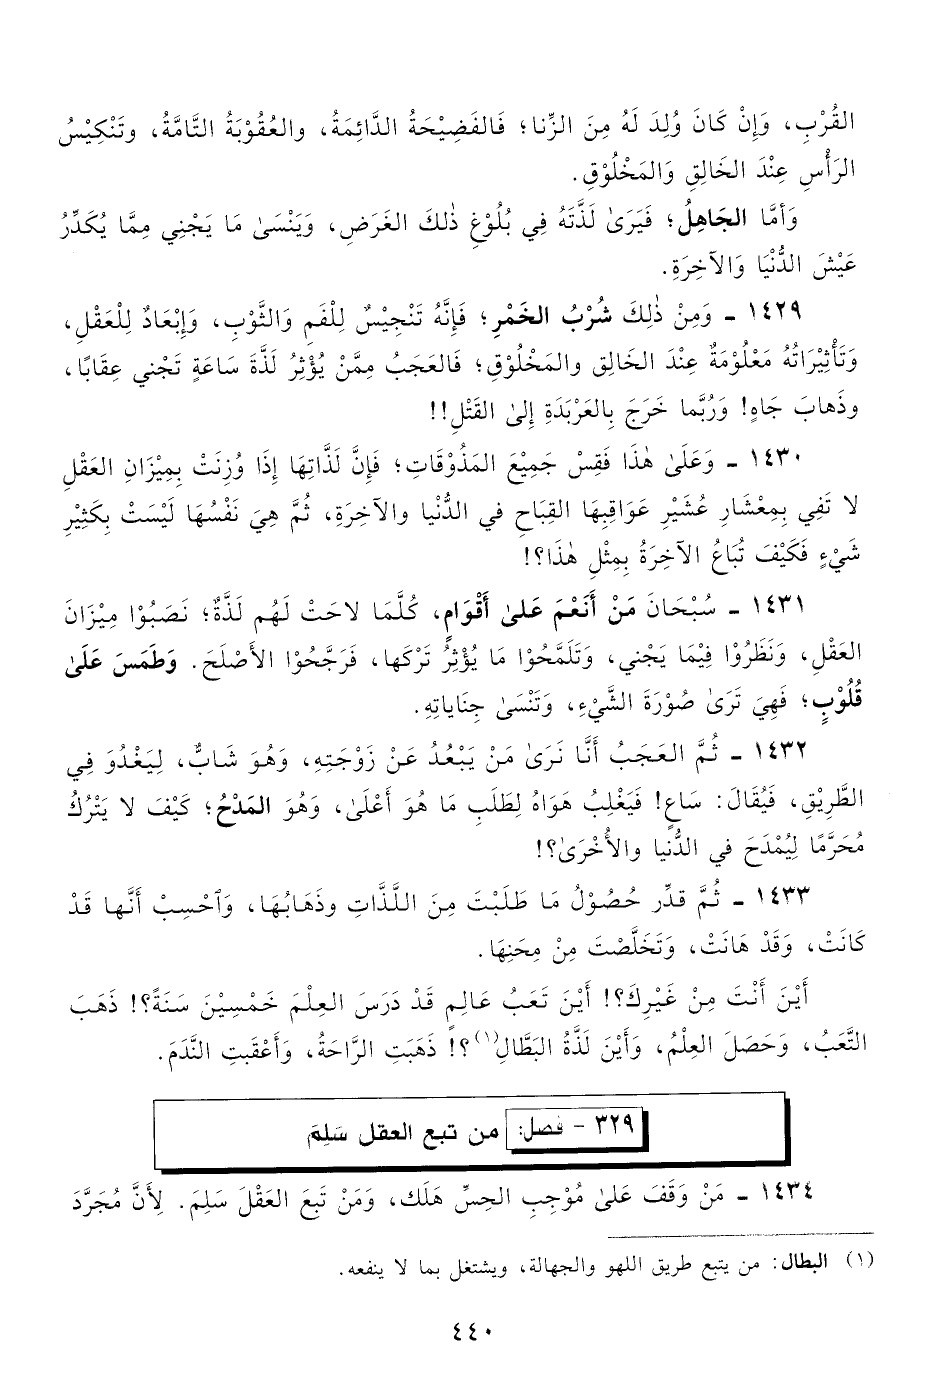 القُرْبِ، وَإِنْ كَانَ وُلِدَ لَهُ مِنَ الزِّنا؛ فَالفَضِيْحَةُ الدَّائِمَةُ، والعُقُوْبَةُ التَّامَّةُ، وتَنْكِيْسُ
الرَأْسِ عِنْدَ الخَالِقِ وَالمَخْلُوْقِ.
وَأمَّا الجَاهِلُ؛ فَيَرَىٰ لَذَّتَهُ فِي بُلُوْغِ ذٰلكَ الغَرَضِ، وَيَنْسَىٰ مَا يَجْنِي مِمَّا يُكَدِّرُ
عَيْشَ الدُّنْيَا وَالآخِرَةِ.
١٤٢٩ ـ وَمِنْ ذٰلِكَ شُرْبُ الخَمْرِ؛ فَإِنَّهُ تَنْجِيْسٌ لِلْفَمِ وَالثَّوْبِ، وَإِبْعَادٌ لِلْعَقْلِ،
وَتَأْثِيْرَاتُهُ مَعْلُوْمَةٌ عِنْدَ الخَالِقِ والمَخْلُوْقِ؛ فَالعَجَبُ مِمَّنْ يُؤْثِرُ لَذَّةَ سَاعَةٍ تَجْني عِقَابًا،
وذَهابَ جَاهٍ! وَرُبَّما خَرَجَ بِالعَرْبَدَةِ إِلىٰ القَتْلِ!!
١٤٣٠ ـ وَعَلَىٰ هٰذا فَقِسْ جَمِيْعَ المَذُوْقَاتِ؛ فَإِنَّ لَذَّاتِهَا إِذَا وُزِنَتْ بِمِيْزَانِ العَقْلِ
لا تَفِي بِمِعْشَارِ عُشَيْرِ عَوَاقِبِهَا القِبَاحِ في الدُّنْيا والآخِرَةِ، ثُمَّ هِيَ نَفْسُهَا لَيْسَتْ بِكَثِيْرِ
شَيْءٍ فَكَيْفَ تُبَاعُ الآخِرَةُ بِمِثْلِ هٰذَا؟!
١٤٣١ ـ سُبْحَانَ مَنْ أَنْعَمَ عَلىٰ أَقْوَامٍ، كُلَّمَا لاحَتْ لَهُم لَذَّةٌ؛ نَصَبُوْا مِيْزَانَ
العَقْلِ، وَنَظَرُوْا فِيْمَا يَجْني، وَتَلَمَّحُوْا مَا يُؤْثِرُ تَرْكَها، فَرَجَّحُوْا الأَصْلَحَ. وَطَمَسَ عَلَىٰ
قُلُوْبٍ؛ فَهِيَ تَرَىٰ صُوْرَةَ الشَّيْءِ، وَتَنْسَىٰ جِنَاياتِهِ.
١٤٣٢ ـ ثُمَّ العَجَبُ أَنَّا نَرَىٰ مَنْ يَبْعُدُ عَنْ زَوْجَتِهِ، وَهُوَ شَابٌّ، لِيَعْدُوَ فِي
الطَّرِيْقِ، فَيُقَالَ: سَاعٍ! فَيَغْلِبُ هَوَاهُ لِطَلَبِ مَا هُوَ أَعْلَىٰ، وَهُوَ المَدْحُ؛ كَيْفَ لا يَتْرُكُ
مُحَرَّمًا لِيُمْدَحَ في الدُّنيا والأُخْرَىٰ؟!
١٤٣٣ ـ ثُمَّ قَدِّر حُصُوْلَ مَا طَلَبْتَ مِنَ اللَّذَّاتِ وذَهَابُهَا، وَٱحْسِبْ أَنَّها قَدْ
كَانَتْ، وَقَدْ هَانَتْ، وَتَخَلَّصْتَ مِنْ مِحَنِهَا.
أَيْنَ أَنْتَ مِنْ غَيْرِكَ؟! أَيْنَ تَعَبُ عَالِمٍ قَدْ دَرَسَ العِلْمَ خَمْسِيْنَ سَنَةً؟! ذَهَبَ
التَّعَبُ، وَحَصَلَ العِلْمُ، وَأَيْنَ لَذَّةُ البَطَّالِ(١)؟! ذَهَبَتِ الرَّاحَةُ، وَأَعْقَبَتِ النَّدَمَ.
٣٢٩ - فصل: من تبع العقل سَلِمَ
١٤٣٤ ـ مَنْ وَقَفَ عَلىٰ مُوْجِبِ الحِسِّ هَلَكَ، وَمَنْ تَبِعَ العَقْلَ سَلِمَ. لِأَنَّ مُجَرَّدَ
(١) البطال: من يتبع طريق اللهو والجهالة، ويشتغل بما لا ينفعه.
٤٤٠